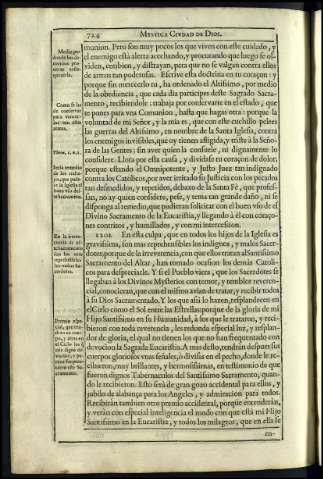 724
MYSTICA CIUDAD DE DIOS.
munion. Pero son muy pocos los que viven con este cuidado, y
el enemigo está alerta acechando, y procurando que luego se ol-
viden, entibien, y distraygan, para que no se valgan contra ellos
de armas tan poderosas. Escrive esta doctrina en tu coraçon: y
porque sin merecerlo tu, ha ordenado el Altissimo, por medio
de la obediencia, que cada dia participes deste Sagrado Sacra-
mento, recibiendole: trabaja por conservarte en el estado, que
te pones para vna Comunion, hasta que hagas otra: porque la
voluntad de mi Señor, y la mia es, que con este cuchillo pelees
las guerras del Altissimo, en nombre de la Santa Iglesia, contra
los enemigos invisibles, que oy tienen afligida, y triste á la Seño-
ra de las Gentes; sin aver quien la consuele, ni dignamente lo
considere. Llora por esta causa, y dividase tu coraçon de dolor;
porque estando el Omnipotente, y Justo Juez tan indignado
contra los Catolicos, por aver irritado su Justicia con los pecados
tan desmedidos, y repetidos, debaxo de la Santa Fé, que profes-
san, no ay quien considere, pese, y tema tan grande daño, ni se
disponga al remedio, que pudieran solicitar con el buen vso de el
Divino Sacramento de la Eucaristia, y llegando á él con coraço-
nes contritos, y humillados, y con mi intercession.
En esta culpa, que en todos los hijos de la Iglesia es
gravissima, son mas reprehensibles los indignos, y malos Sacer-
dotes; porque de la irreverencia, con que ellos tratan al Santissimo
Sacramento del Altar, han tomado ocasion los demás Catoli-
cos para despreciarle. Y si el Pueblo viera, que los Sacerdotes se
llegaban á los Divinos Mysterios con temor, y temblor reveren-
cial, conocieran, que con el mismo avian de tratar, y recibir todos
á su Dios Sacramentado. Y los que assi lo hazen, resplandecen en
el Cielo como el Sol entre las Estrellas; porque de la gloria de mi
Hijo Santissimo en su Humanidad, á los que le trataron, y reci-
bieron con toda reverencia, les redunda especial luz, y resplan-
dor de gloria, el qual no tienen los que no han frequentado con
devocion la Sagrada Eucaristia. A mas de esto, tendrán despues sus
cuerpos gloriosos vnas señales, ó divisas en el pecho, donde le re-
cibieron, muy brillantes, y hermosissimas, en testimonio de que
fueron dignos Tabernaculos del Santissimo Sacramento, quan-
do le recibieron. Esto será de gran gozo accidental para ellos, y
jubilo de alabança para los Angeles, y admiracion para todos.
Recibirán tambien otro premio accidental, porque entenderán,
y verán con especial inteligencia el modo con que está mi Hijo
Santissimo en la Eucaristia, y todos los milagros, que en ella se